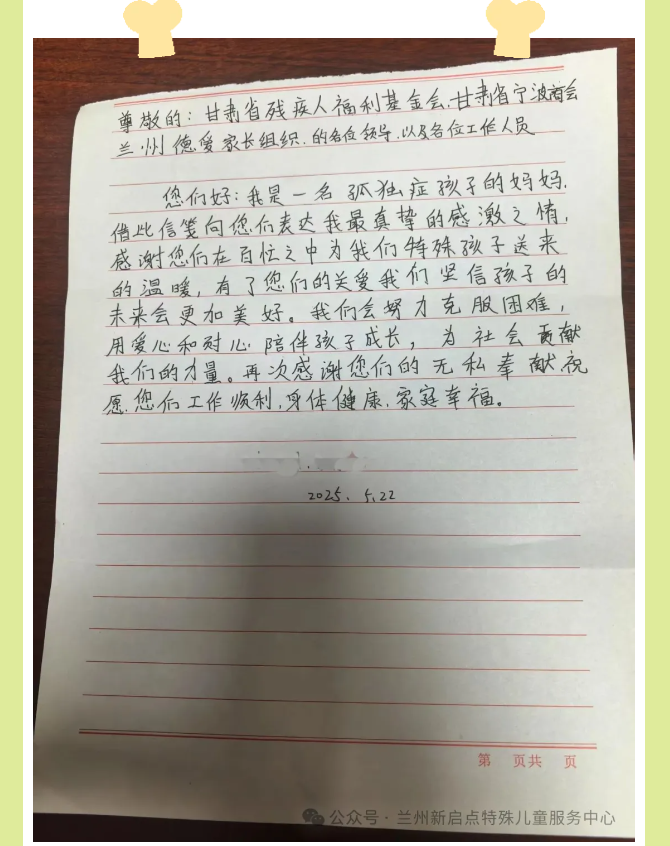 尊敬的：甘肃省残疾人福利基金会.甘肃省宁波商会
兰州德爱家长组织.的各位领导.以及各位工作人员
您们好：我是一名孤独症孩子的妈妈.
借此信笺向您们表达我最真挚的感激之情,
感谢您们在百忙之中为我们特殊孩子送来
的温暖，有了您们的关爱我们坚信孩子的
未来会更加美好。我们会努力克服困难，
用爱心和耐心陪伴孩子成长，为社会贡献
我们的力量。再次感谢您们的无私奉献祝
愿.您们工作顺利.身体健康.家庭幸福。
2025. 5.22
第 页共 页
公众号·兰州新启点特殊儿童服务中心